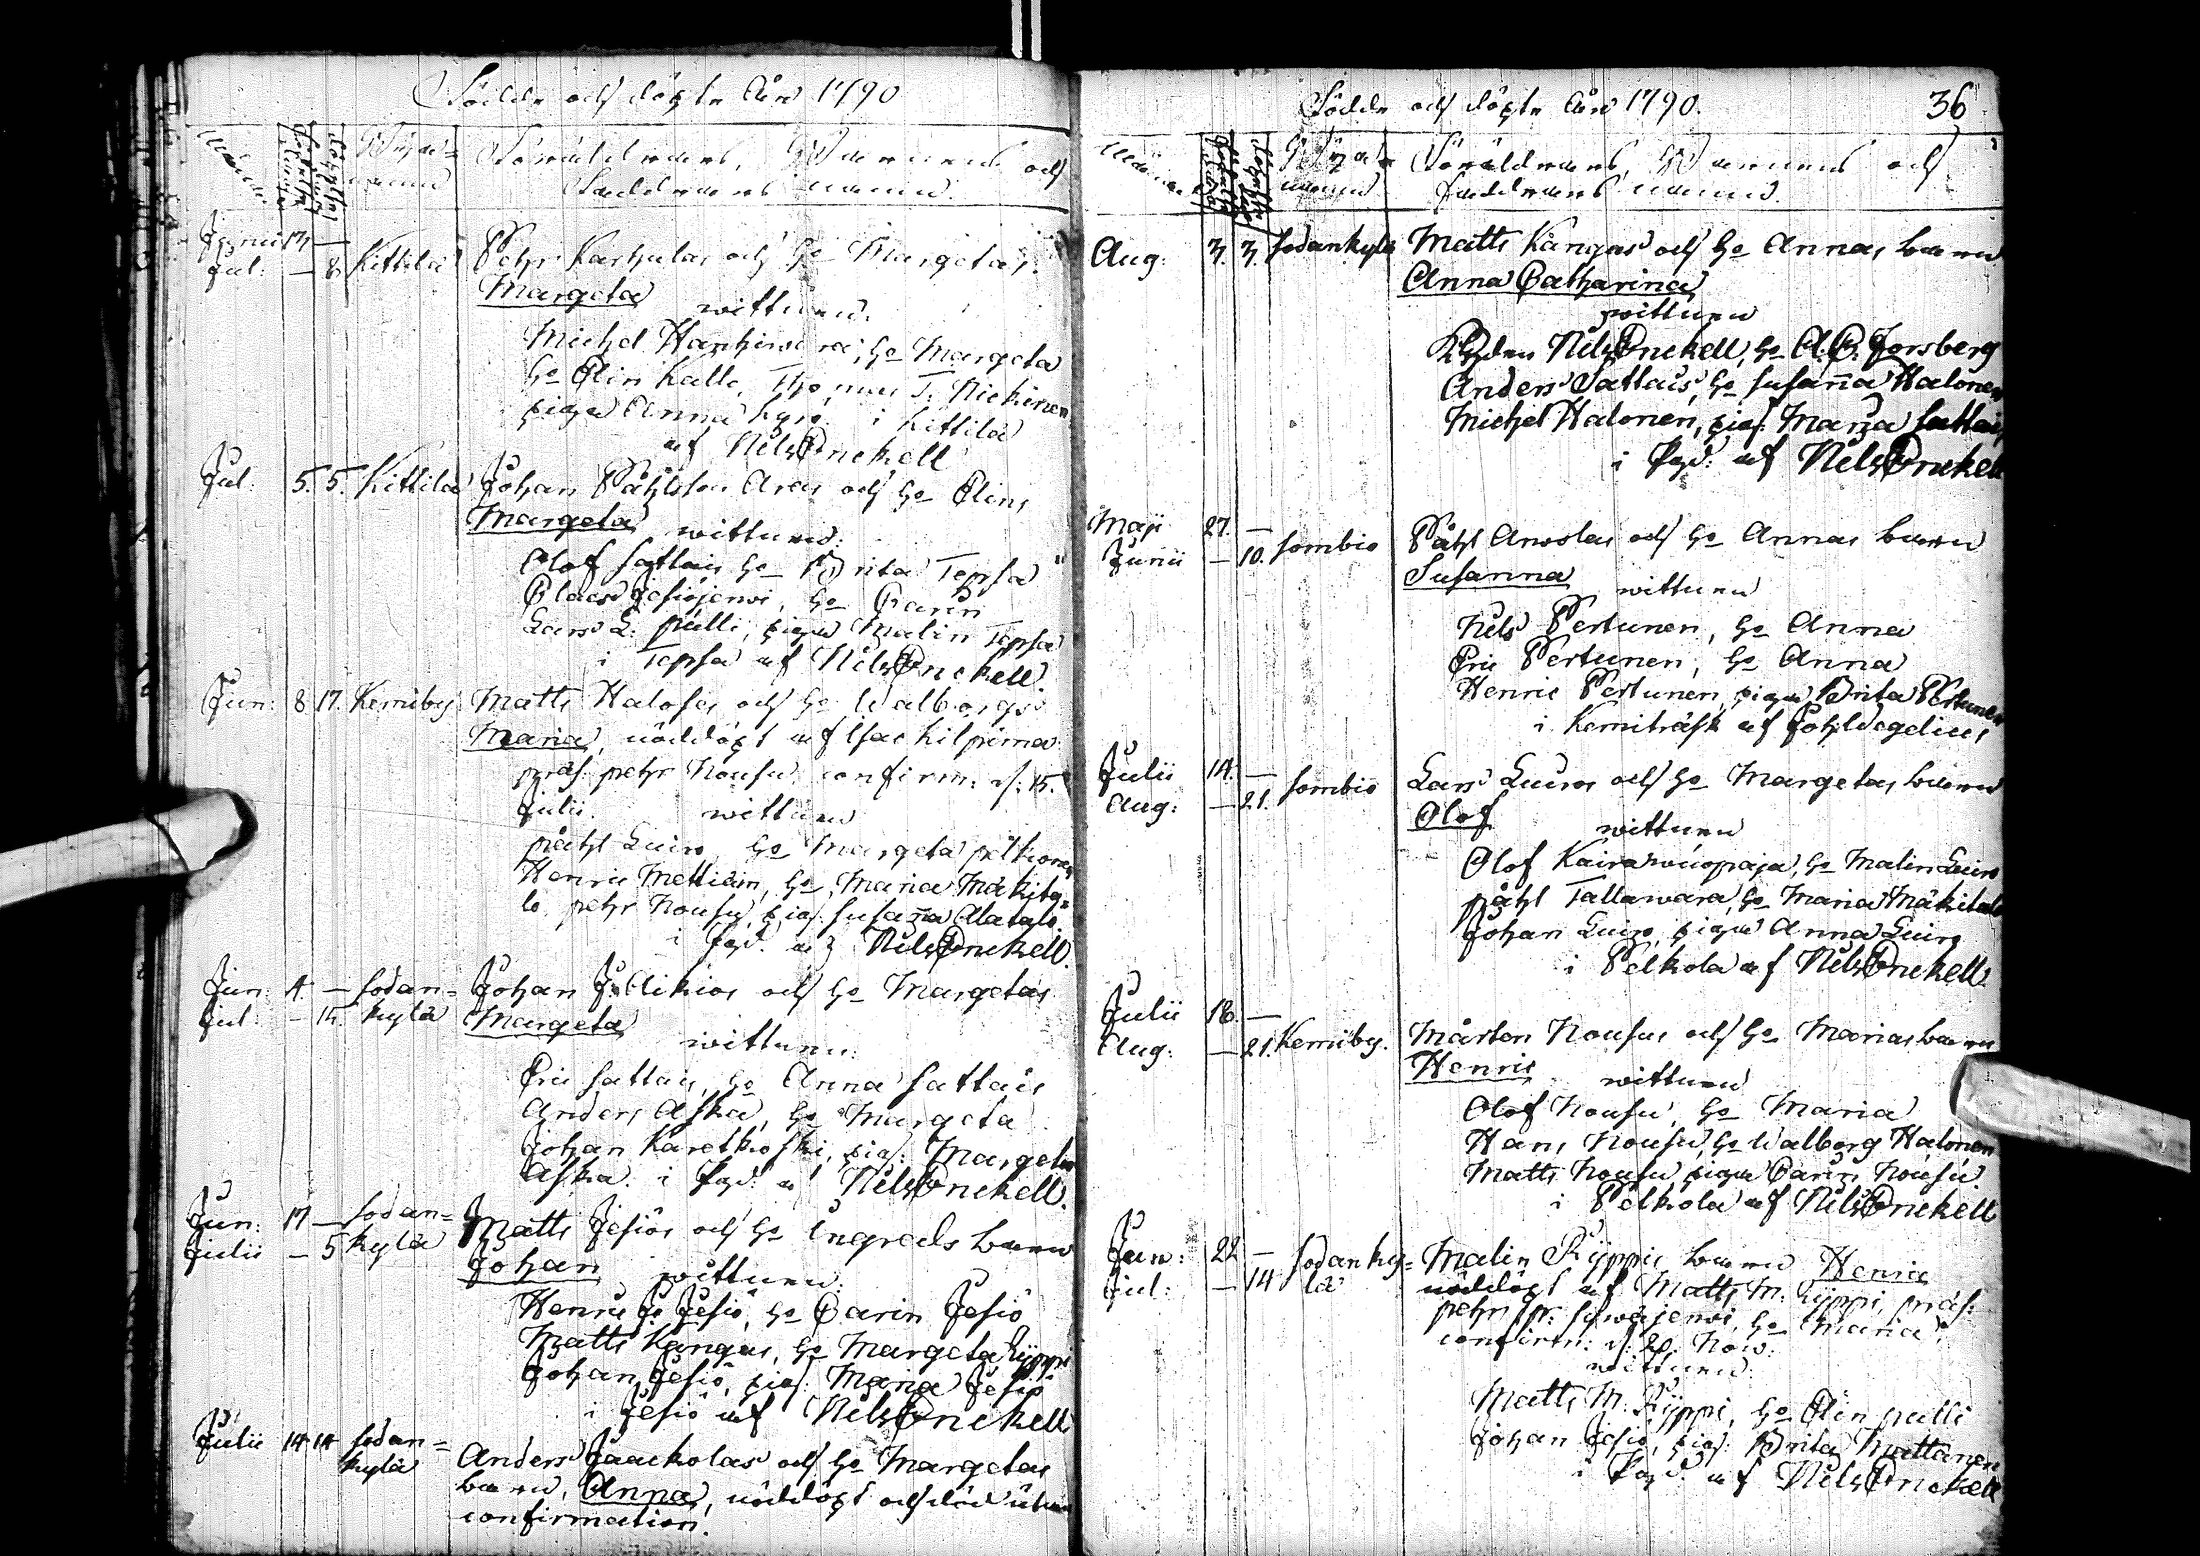 Födde och döpte Åhr 1790
Månader Födelse Datum Döpelse Datum Byja= namn Föräldrars, Barnens och
Faddrars namn.
Junii 17. —
Jul: — 8. Kittilä Pehr Karhulas och H:o Margetas
Margeta wittnen.
Michel Hanhiwara, H:o Margeta
H:o Elin Kallo, Thomas T. Nickinen
pigan Anna Kyrö. i Kittilä
af Nils Enckell
Jul. 5. 5. Kittilä Johan Påhlsson Aras och H:o Elins
Margeta wittnen.
Olof Sattais H:o Brita Tepsa
Claes Jesiöjerwi, H:o Carin
Lars L. pulli, pigan Malin Tepsa
i Tepsa af Nils Enckell.
Jun: 8 17. Kemiby Matts Halosas och H:o Walborgs
Maria, nöddöpt af Isac Kilpima
præs. pehr Nousu, confirm. d. 15.
Julii. wittnen
påhl Luiro H:o Margeta pelkonen
Henric Mettiäin, H:o Maria Mäkita=
lo, pehr Nousu, pig. Susanna Alatalo.
i Pgd. af Nils Enckell.
Jun: 4. — Sodan= Johan J. Aikios och H:o Margetas
Jul: — 14. kylä Margeta
wittnen.
Eric Sattais, H:o Anna Sattais
Anders Aska, H:o Margeta
Johan Karetkoski, pig. Margeta
Aska. i Pgd. af Nils Enckell.
Jun: 17 — Sodan= Matts Jesiös och H:o Ingreds barn
Julii — 5 kylä Johan wittnen.
Henric J. Jesiö, H:o Carin Jesiö
Matts Kangas, H:o Margeta Ryppi
Johan Jesiö, pig. Maria Jesiö
i Jesiö af Nils Enckell
Julii 14 14 Sodan= Anders Jaackolas och H:o Margetas
kylä barn, Anna, nöddöpt och död utan
confirmation.
Födde och döpte Åhr 1790. 36
Månader Födelse Döpelse Byja namn Föräldrars, Barnens och
Faddrars namn.
Aug: 3. 3. Sodankylä Matts Kangas och H:o Annas barn
Anna Catharina
wittnen
KHden Nils Enckell, H:o A. C. Forsberg
Anders Sattais, H:o Susanna Halonen
Michel Halonen, pig. Maria Sattais
i Pgd: af Nils Enckell
Maji 27. —
Junii — 10. Sombio Påhl Arwolas och H:o Annas barn
Susanna wittnen
Nils Pertunen, H:o Anna
Eric Pertunen, H:o Anna
Henric Pertunen, pigan Brita Pertunen
i Kemiträsk af Joh. Wegelius
Julii 14. —
Aug: — 21. Sombio Lars Luiros och H:o Margetas barn
Olof wittnen
Olof Kairawuopaja, H:o Malin Luiro
påhl Tallawara, H:o Maria Mäkitalo
Johan Luiro, pigan Anna Luiro
i Pelkola af Nils Enckell.
Julii 18. —
Aug: — 21. Kemiby. Mårten Nousus och H:o Marias barn
Henric wittnen
Olof Nousu, H:o Maria
Hans Nousu, H:o Walborg Halonen
Matts Nousu, pigan Carin Nousu.
i Pelkola af Nils Enckell
Jun: 22 — Sodanky= Malin Ryppis barn Henric
Jul: — 14 lä nöddöpt af Matts M. Ryppi, præs:
pehr pr. Sirwäjerwi, H:o Maria,
confirm: d. 20. Now.
wittnen.
Matts M. Ryppi, H:o Elin pulli
Johan Jesiö, pig: Brita Mattanen
i Pgd. af Nils Enckell